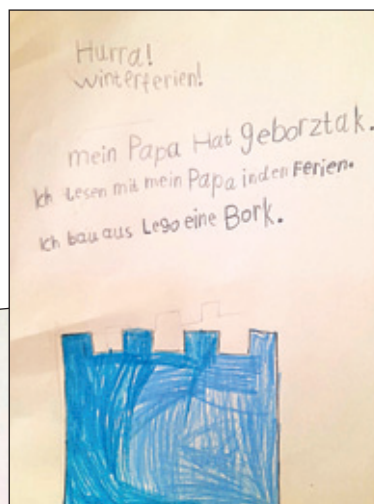 Hurra!
winterferien!
mein Papa Hat geborztak.
Ich Lesen mit mein Papa inden Ferien.
Ich bau aus Lego eine Bork.